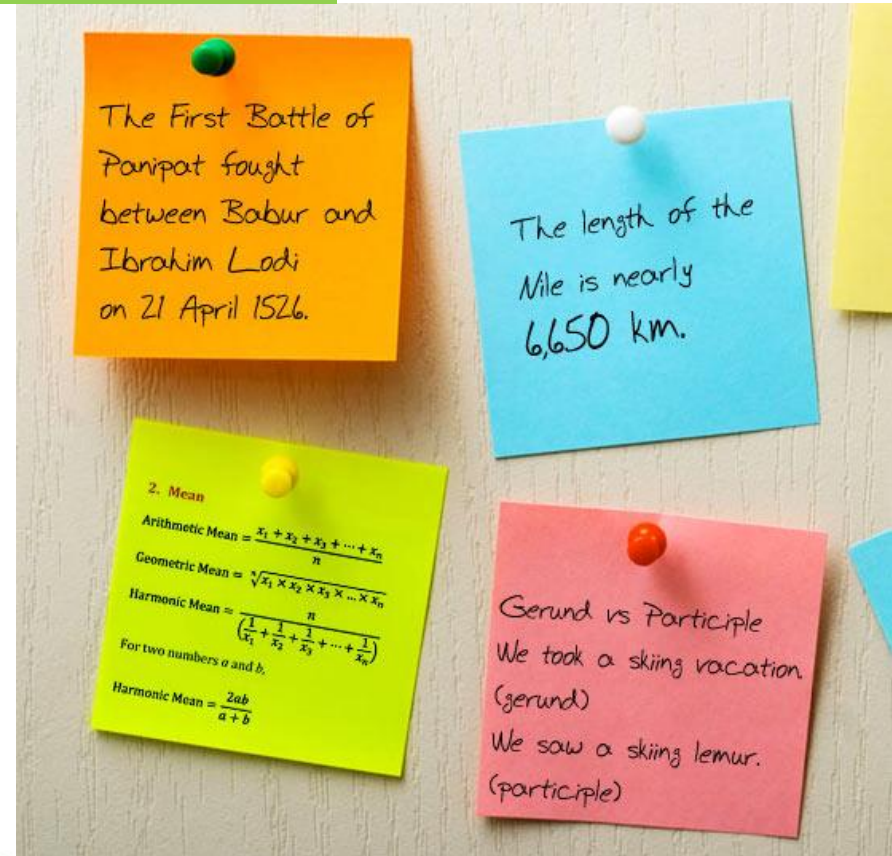 The First Battle of
Panipat fought
between Babur and
Ibrahim Lodi
on 21 April 1526.
The length of the
Nile is nearly
6,650 km.
2. Mean
Arithmetic Mean = (x₁ + x₂ + x₃ + ⋯ + xₙ)/n
Geometric Mean = ⁿ√(x₁ × x₂ × x₃ × … × xₙ)
Harmonic Mean = n/(1/x₁ + 1/x₂ + 1/x₃ + ⋯ + 1/xₙ)
For two numbers a and b,
Harmonic Mean = 2ab/(a + b)
Gerund vs Participle
We took a skiing vacation.
(gerund)
We saw a skiing lemur.
(participle)